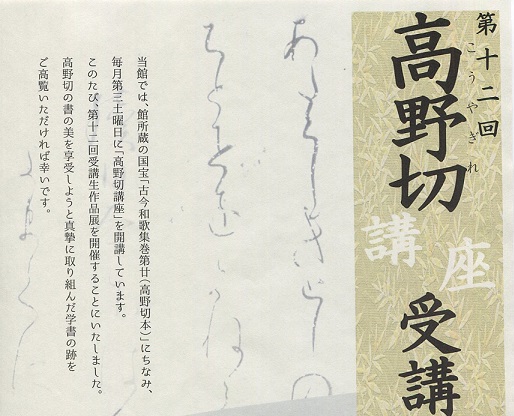 第十二回
高野切
こうやぎれ
講座
受講
当館では、館所蔵の国宝「古今和歌集巻第廿（高野切本）」にちなみ、
毎月第三土曜日に「高野切講座」を開講しています。
このたび、第十二回受講生作品展を開催することにいたしました。
高野切の書の美を享受しようと真摯に取り組んだ学書の跡を
ご高覧いただければ幸いです。